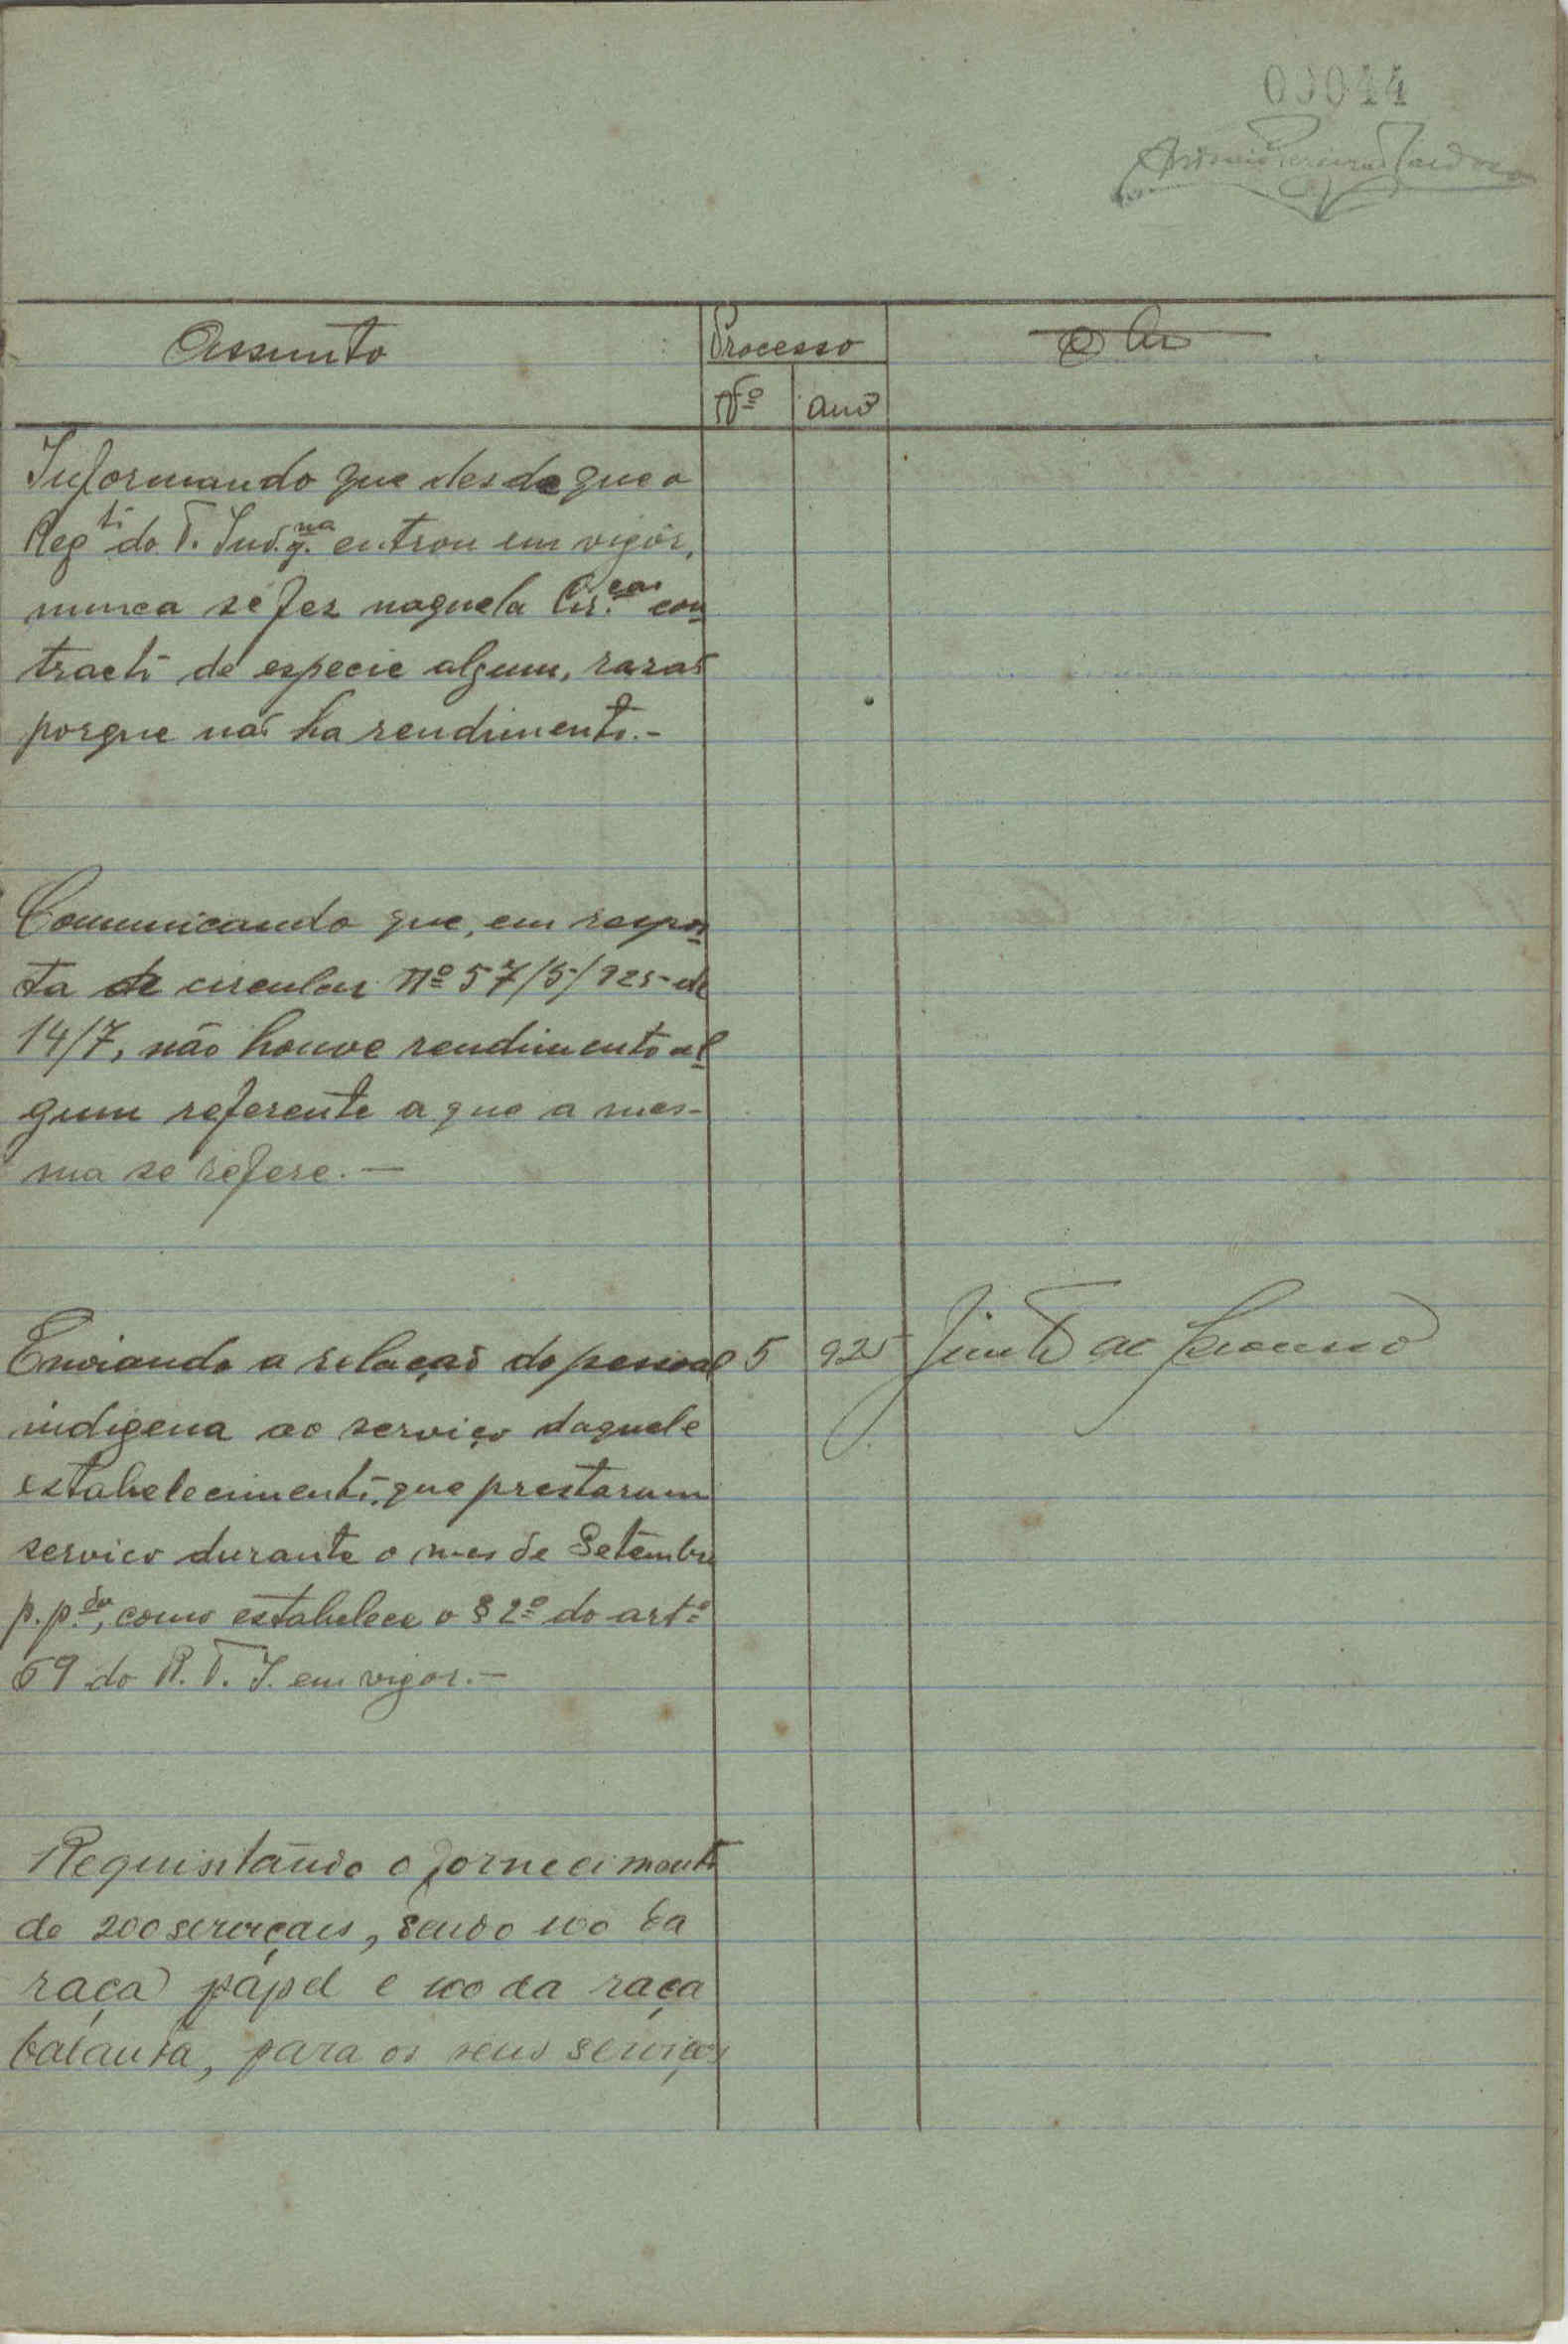 00044
Antonio Pereira Cardoso
Assumto
Processo
Nº
ano
Informando que desde que o
Regto do T. Indigna entrou em vigôr,
nunca se fez naquela Cir.cao con
tracto de especie algum, razaõ
porque naõ ha rendimento.-
Comunicando que, em respos
ta de circular nº 57/5/925 de
14/7, não houve rendimento al
gum referente a que a mes-
ma se refere. —
Enviando a relaçaõ do pessoal
5
925
Junto ao processo
indigena ao serviço daquele
estabelecimento, que prestaram
servico durante o mes de Setembro
p.p.do, como estabelece o § 2º do artº
69 do R. T. I. em vigor. —
Requisitando o fornecimento
de 200 serviçais, sendo 100 da
raça papel e 100 da raça
balanta, para os seus serviços